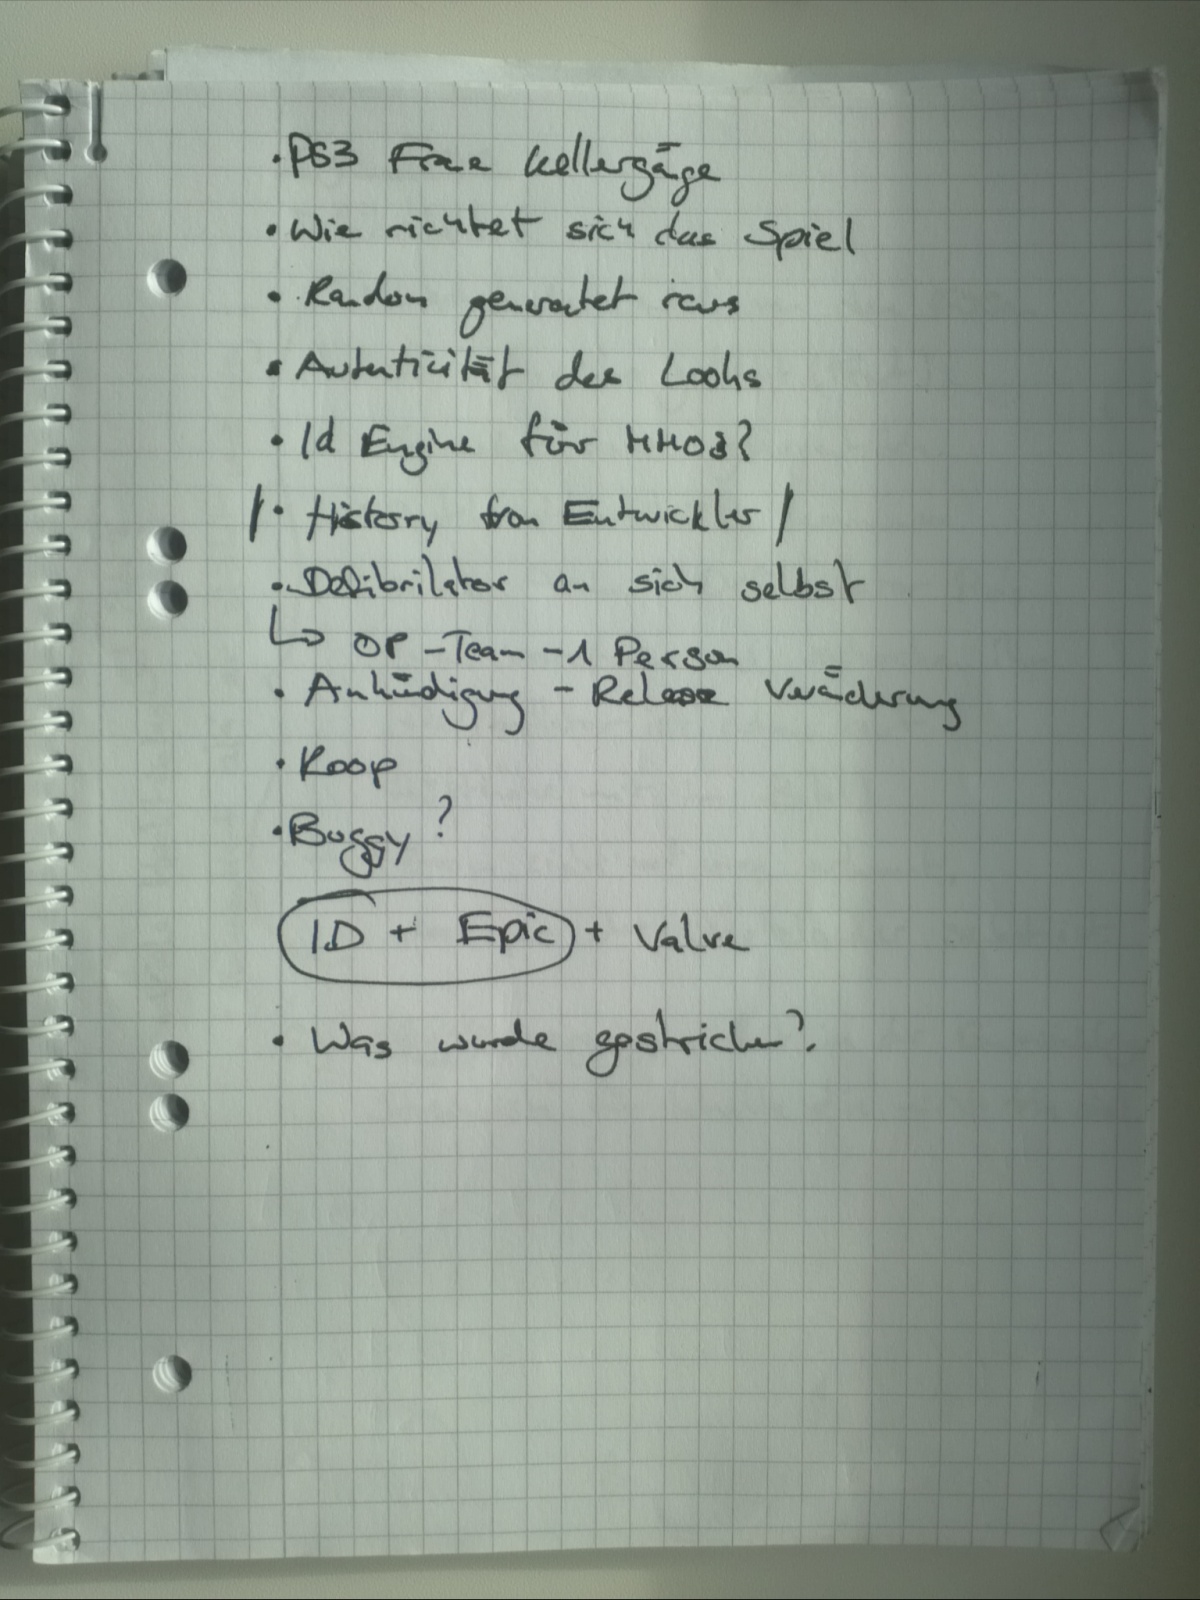 • PS3 Kellergäge
• Wie richtet sich das Spiel
• Random generatet raus
• Autenticität des Looks
• Id Engine für MMOs?
/ • History from Entwickler /
• Defibrilator an sich selbst
↳ OP-Team-1 Person
• Ankündigung - Release Veräderung
• Koop
• Buggy?
ID + Epic + Valve
• Was wurde gestrichen?